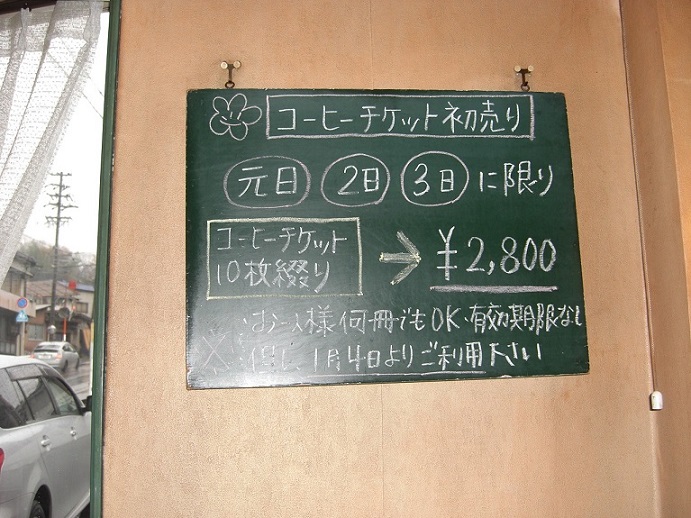 コーヒーチケット初売り
元日 2日 3日に限り
コーヒーチケット
10枚綴り
→ ¥2,800
お一人様何冊でもOK・有効期限なし
※但し1月4日よりご利用下さい